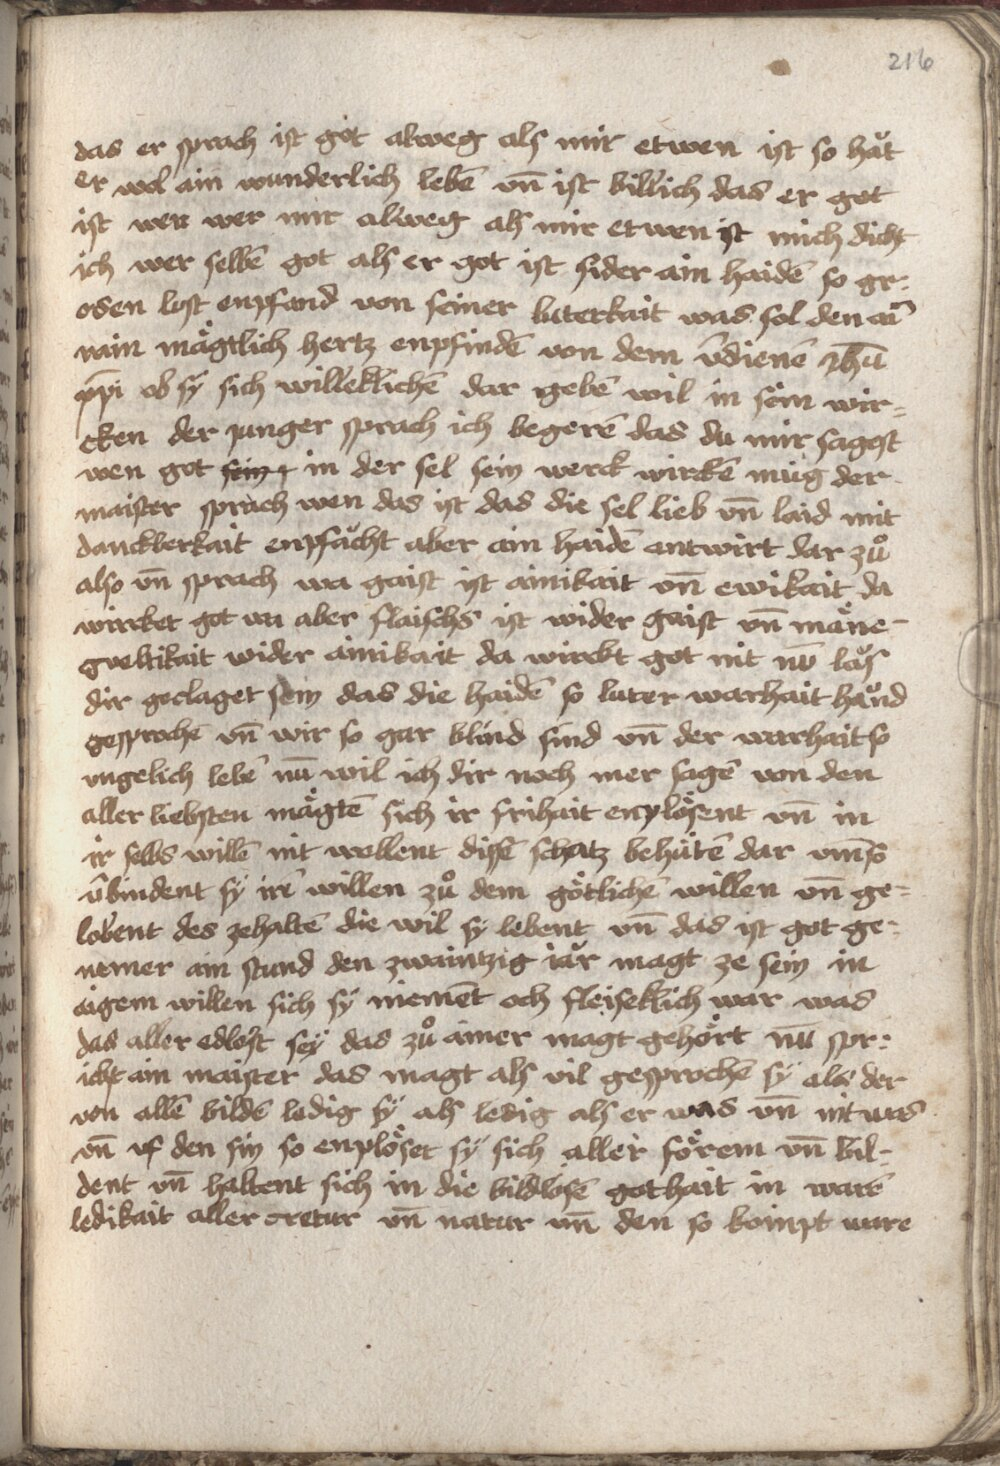 216
das er sprach ist got alweg als mir etwen ist so hăt
er wol ain wunderlich lebē vn̄ ist billich das er got
ist wen wer mir alweg als mir etwen ist mich dicht
ich wer selbē got als er got ist sider ain haidē so gr-
osen lost enpfand von seiner luterkait was sol den ain
rain mägtlich hertz enpfindē von dem v̄dienē
ob sÿ sich willeklichē dar gebē wil in söm wir-
cken der junger sprach ich begerē das du mir sagest
wen got sein in der sel sein werck wirckē müg der
maister sprach wen das ist das die sel lieb vn̄ laid mit
danckberkait enpfăcht aber ain haidē antwirt dar zů
also vn̄ sprach wa gaist ist ainikait vn̄ ewikait da
wircket got wa aber flaischs ist wider gaist vn̄ mäne-
gveltikait wider ainikait da wirckt got nit nū lăs
dir geclaget sein das die haidē so luter warhait hănd
gesprochē vn̄ wir so gar blind sind vn̄ der warhait so
vngelich lebē nū wil ich dir noch mer sagē von den
aller liebsten mägtē sich ir frihait enplösent vn̄ in
ir selbs willē nit wellent dissē schatz behütē dar vm̄ so
v̄bindent sÿ irē willen zů dem götlichē willen vn̄ ge-
lobent des zehaltē die wil sÿ lebent vn̄ das ist got ge-
nemer ain stund den zwaintzig iăr magt ze sein in
aigem willen sich sÿ niemēt och fleiseklich war was
das aller edlost seÿ das zů ainer magt gehört nū spr-
icht ain maister das magt als vil gesprochē sÿ als der
von allē bildē ledig sÿ als ledig als er was vn̄ nit was
vn̄ vf den sin so enplöset sÿ sich aller förem vn̄ bil-
dent vn̄ haltent sich in die bildlosē gothait in warē
ledikait aller cretur vn̄ natur vn̄ den so kompt ware